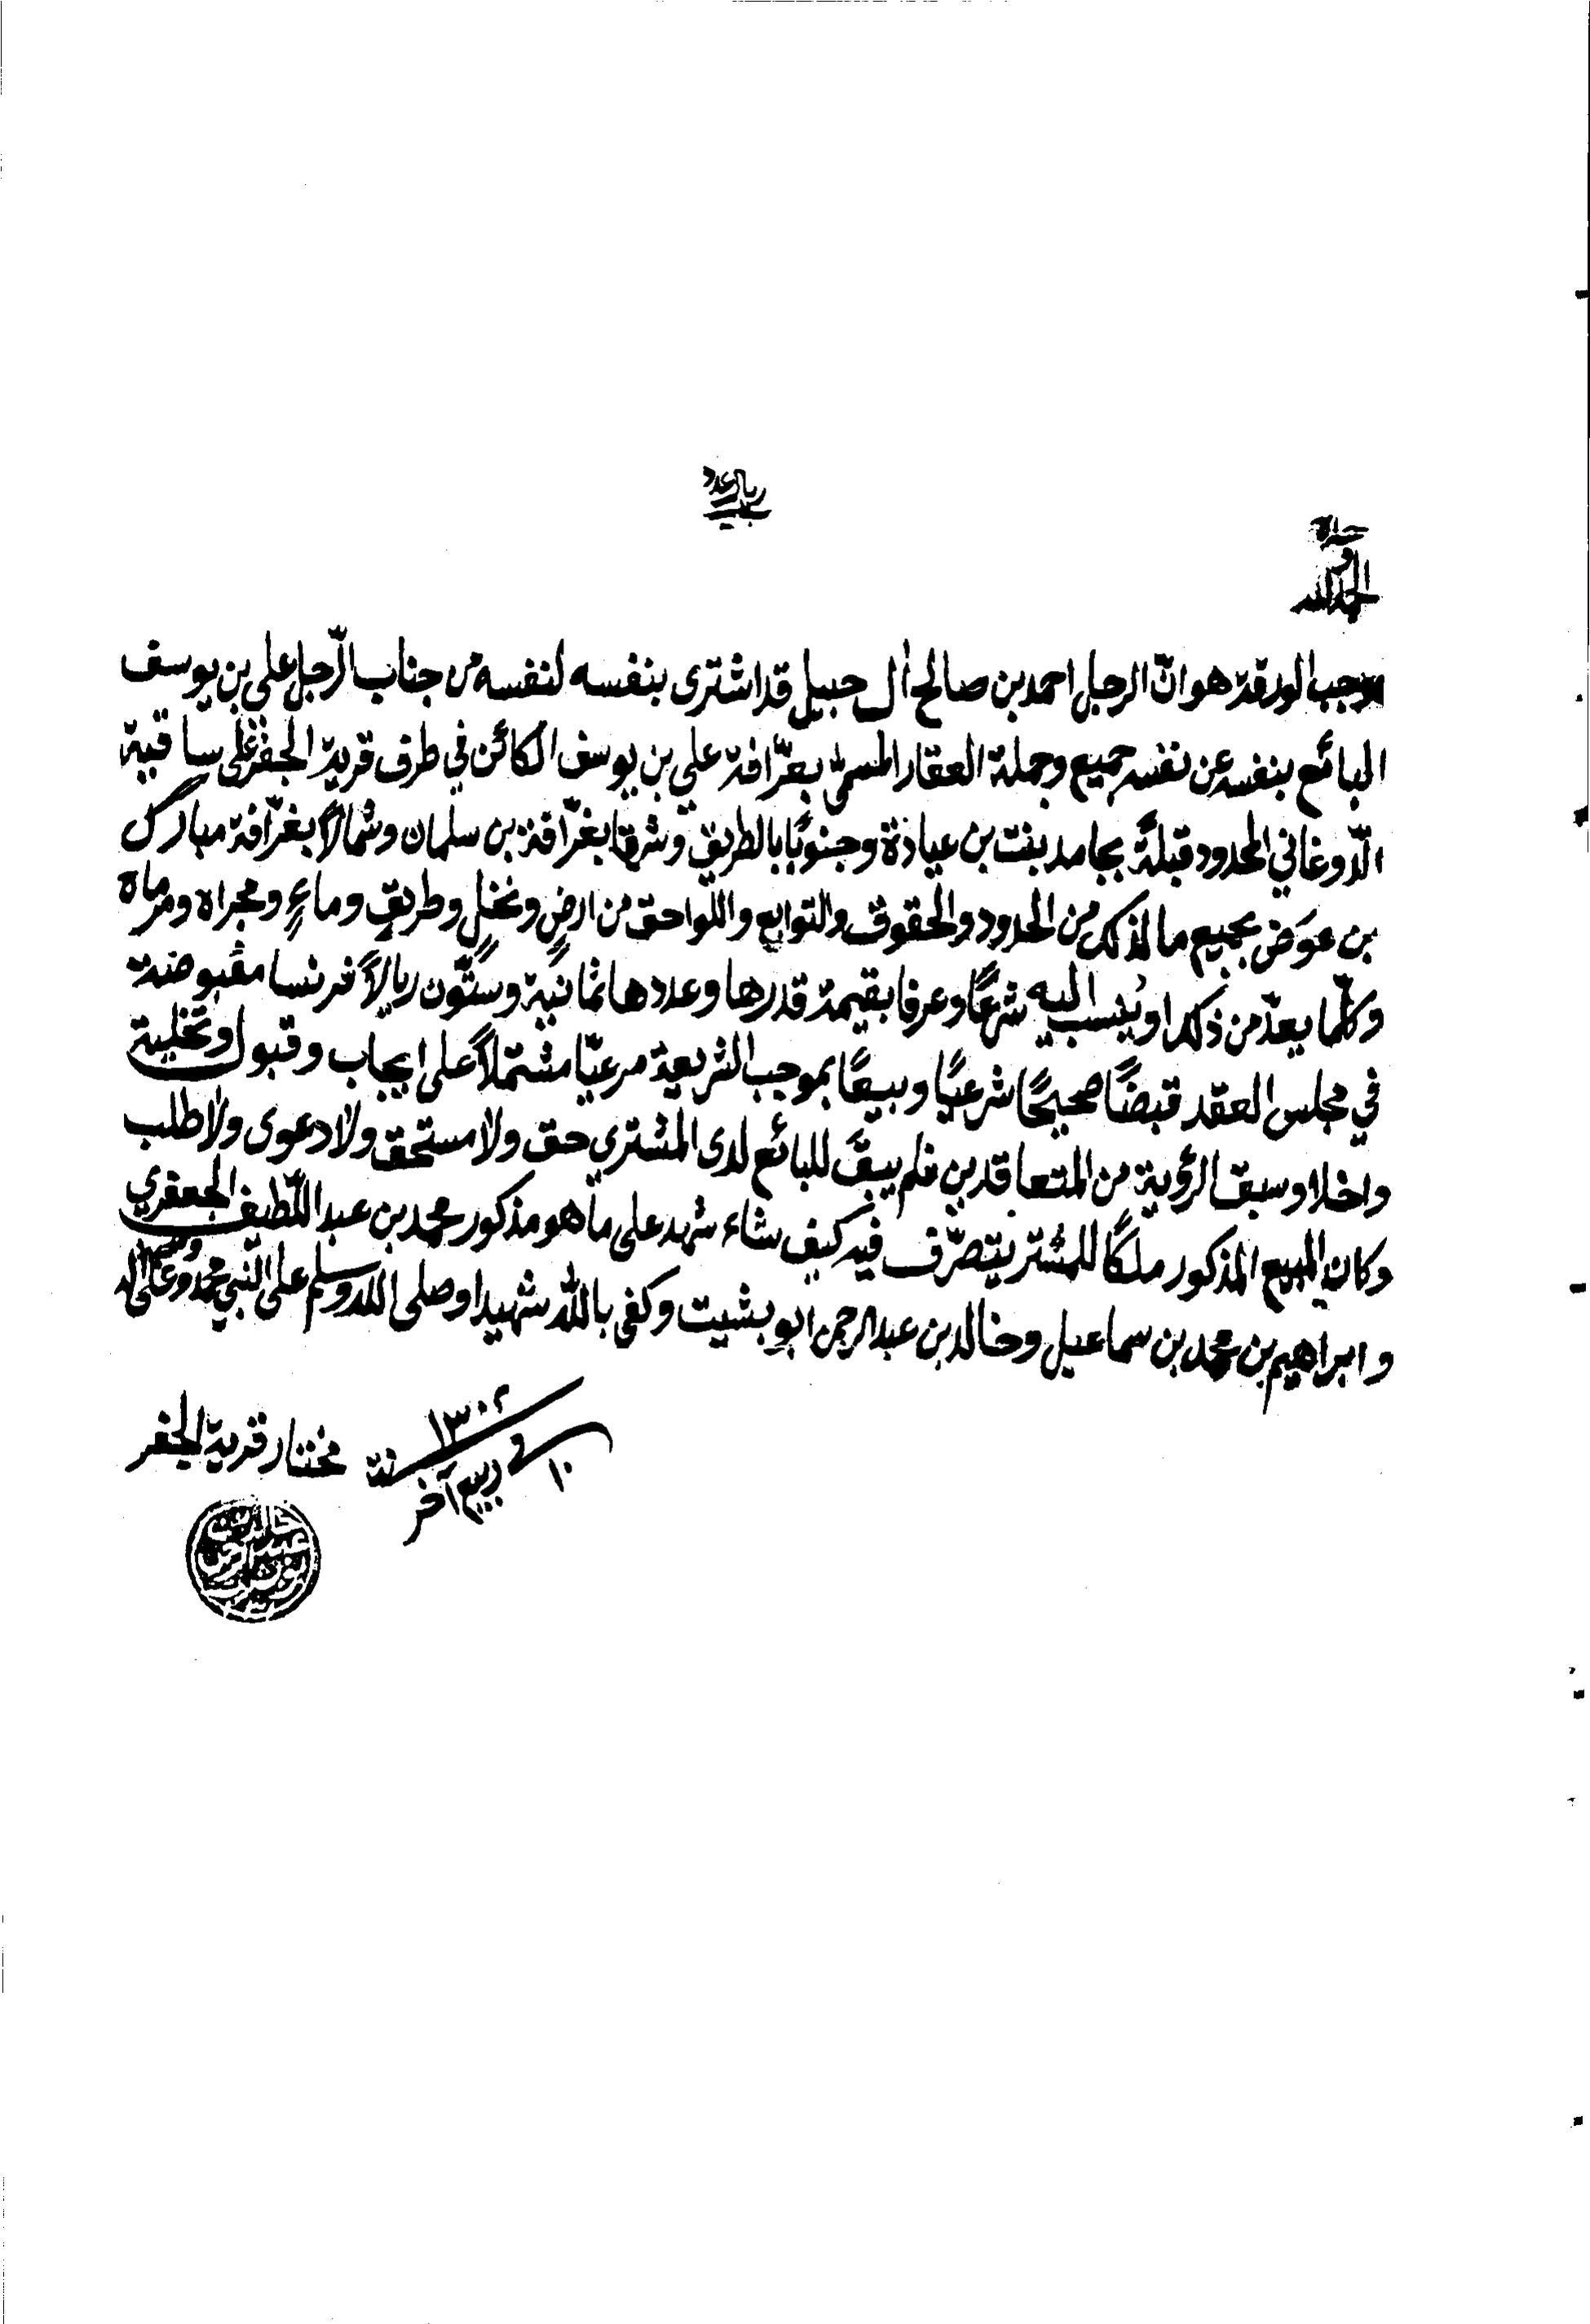 ريال عدد
الحمد لله
موجب الورقة هو انّ الرجل احمد بن صالح آل حبيل قد اشترى بنفسه لنفسه من جناب الرّجل علي بن يوسف
البائع بنفسه عن نفسه جميع وجملة العقار المسمى بغرّافة علي بن يوسف الكائن في طرف قرية الجفر على ساقية
الدّوغاني المحدود قبلةً بجامد بنت بن عيادة وجنوبًا بالطريق وشرقا بغرّافة بن سلمان وشمالًا بغرّافة مبارك
بن عوَض بجميع ما لذلك من الحدود والحقوق والتوابع واللّواحق من ارضٍ ونخلٍ وطريقٍ وماءٍ ومجراه ومرماه
وكلّما يعدّ من ذلك او يُنسب اليه شرعًا وعرفا بقيمة قدرها وعددها ثمانيةٌ وستّون ريالًا فرنسا مقبوضة
في مجلس العقد قبضًا صحيحًا شرعيًا وبيعًا بموجب الشريعة مرعيّا مشتملًا على ايجاب وقبول وتخلية
واخلا وسبق الرؤية من المتعاقدين فلم يبقَ للبائع لدى المشتري حق ولا مستحق ولا دعوى ولا طلب
وكان المبيع المذكور ملكًا للمشتر يتصرّف فيه كيف شاء شهد على ما هو مذكور محمد بن عبد اللّطيف الجعفري
وابراهيم بن محمد بن سماعيل وخالد بن عبد الرحمن ابو بشيت وكفى بالله شهيدا وصلى الله وسلم على النبي محمد وعلى اله
وصحبه
١٠ في ربيع آخر سنة ١٣٠٢
مختار قرية الجفر